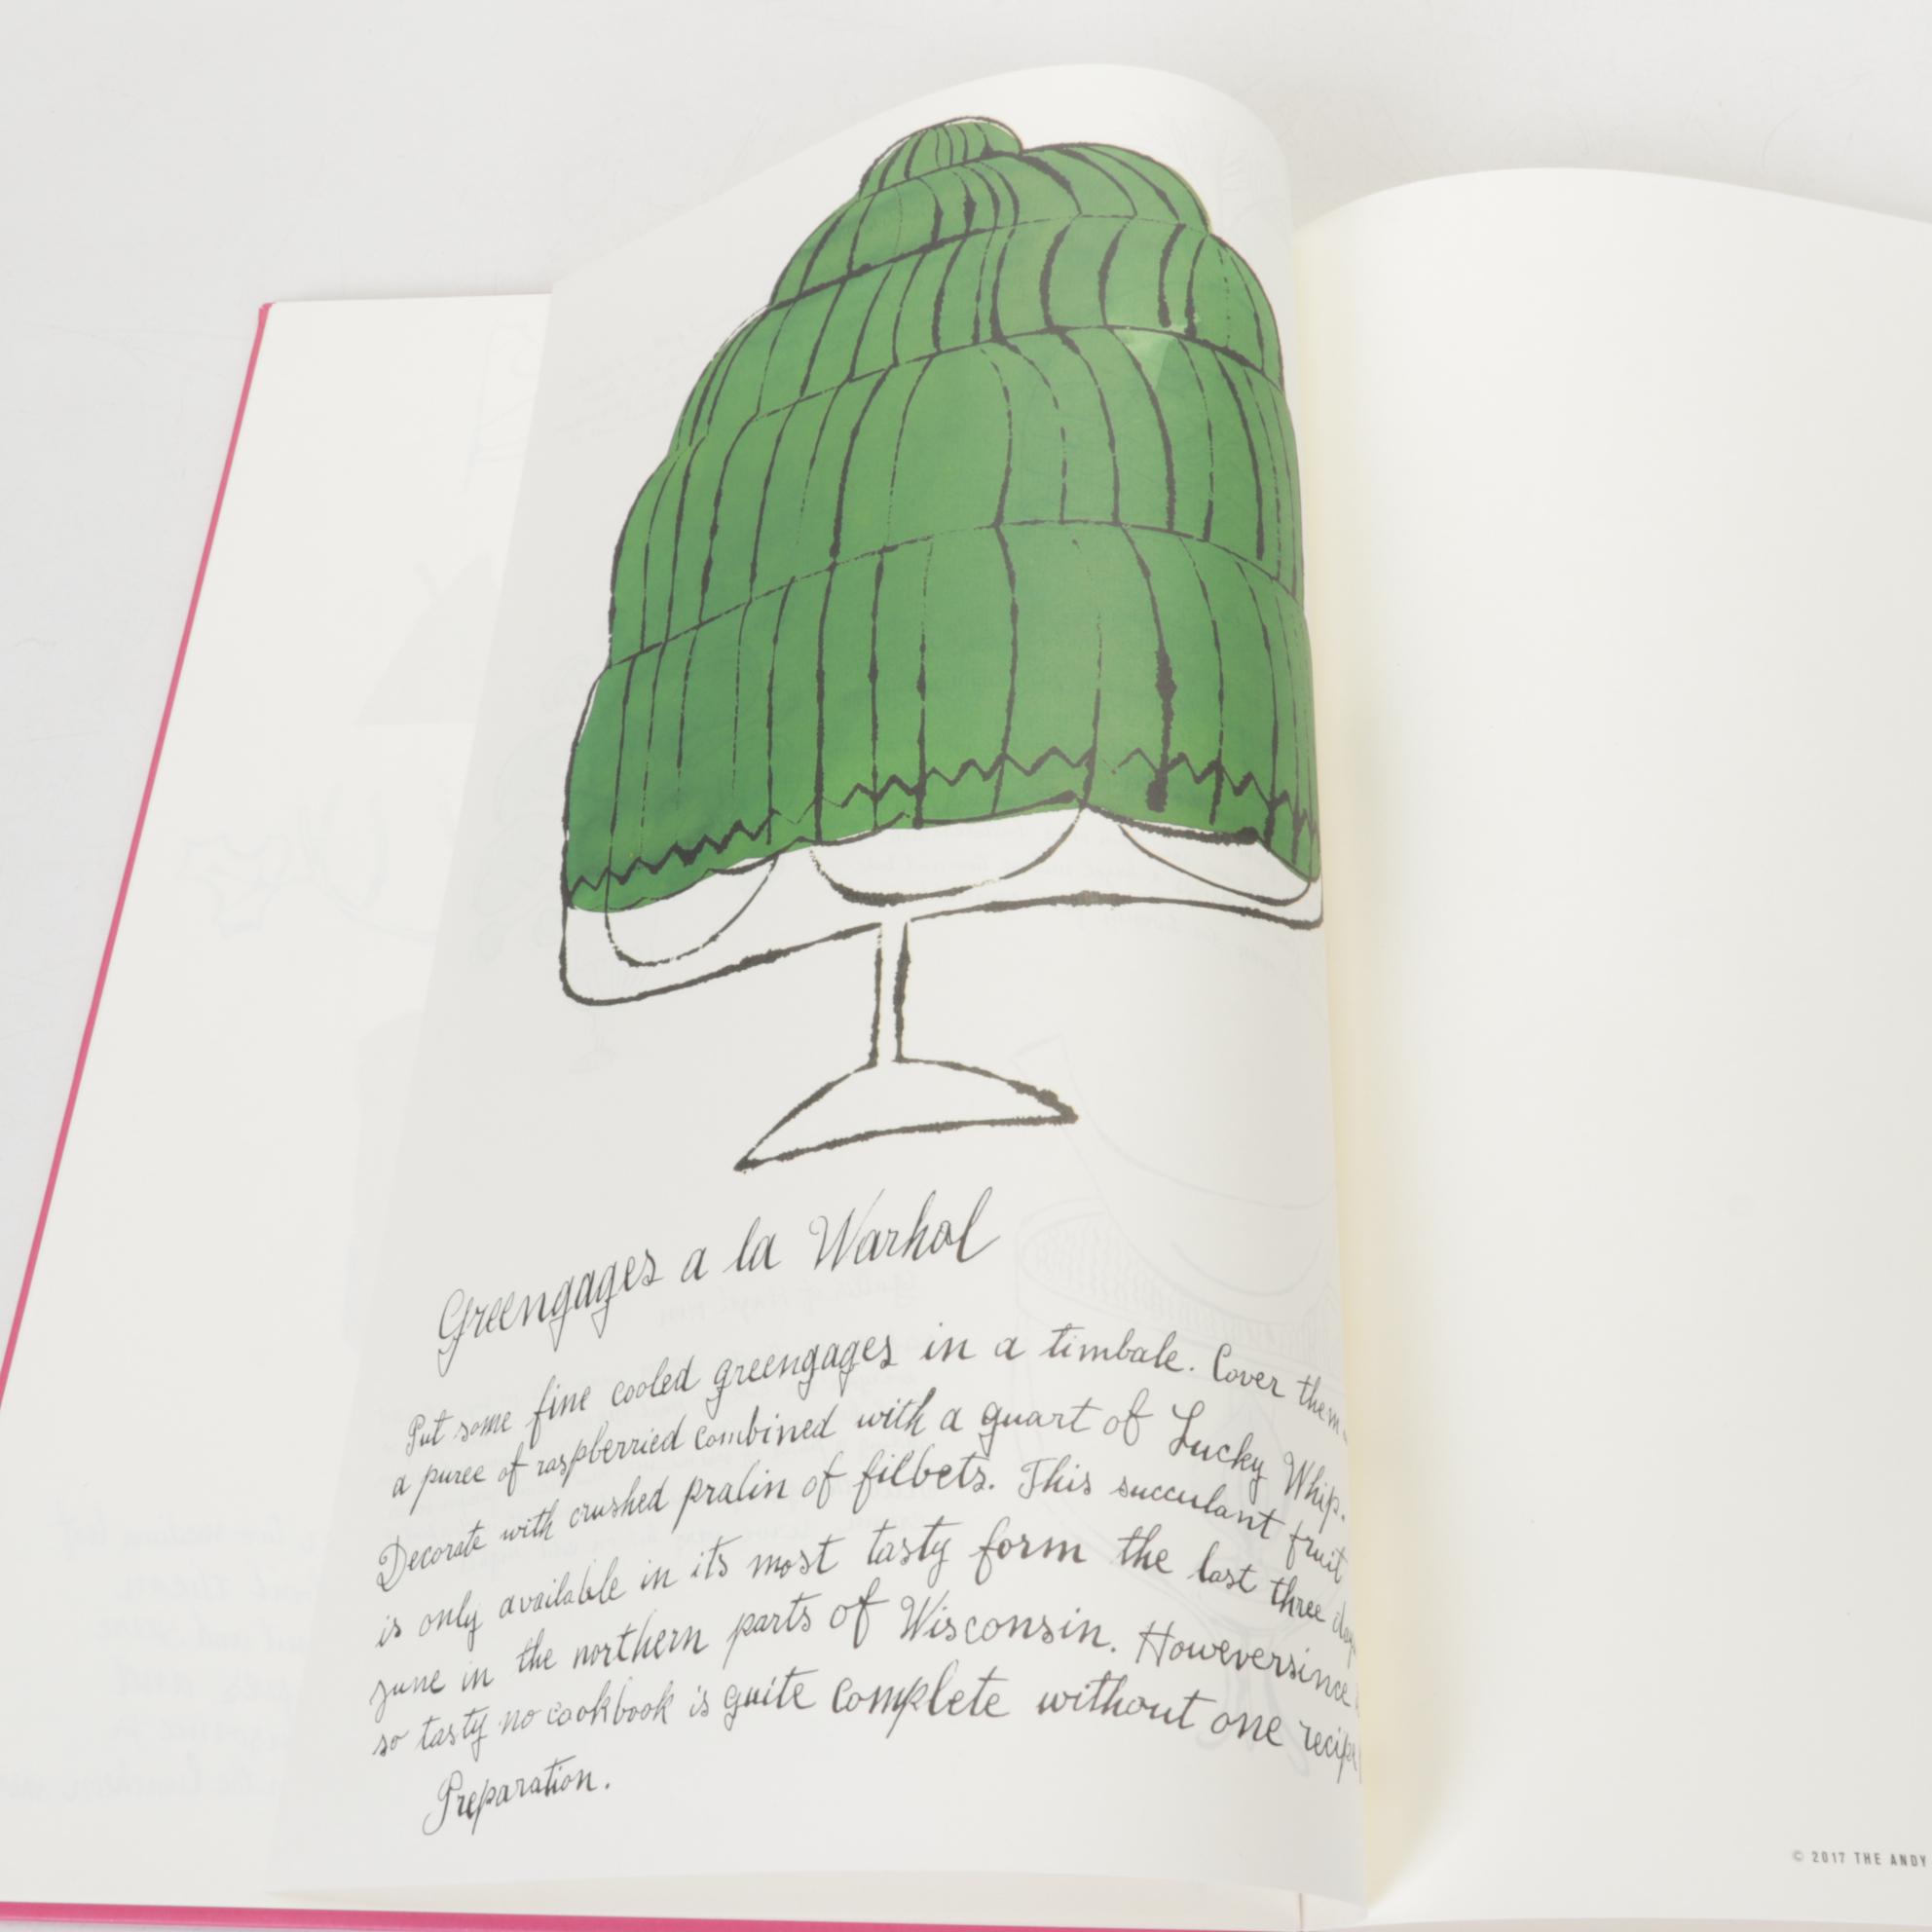 Greengages a la Warhol
Put some fine cooled greengages in a timbale. Cover them
a puree of raspberried combined with a quart of Lucky Whip.
Decorate with crushed pralin of filbets. This succulant fruit
is only available in its most tasty form the last three
june in the northern parts of Wisconsin. Howeversince
so tasty no cookbook is quite complete without one
Preparation.
© 2017 THE ANDY